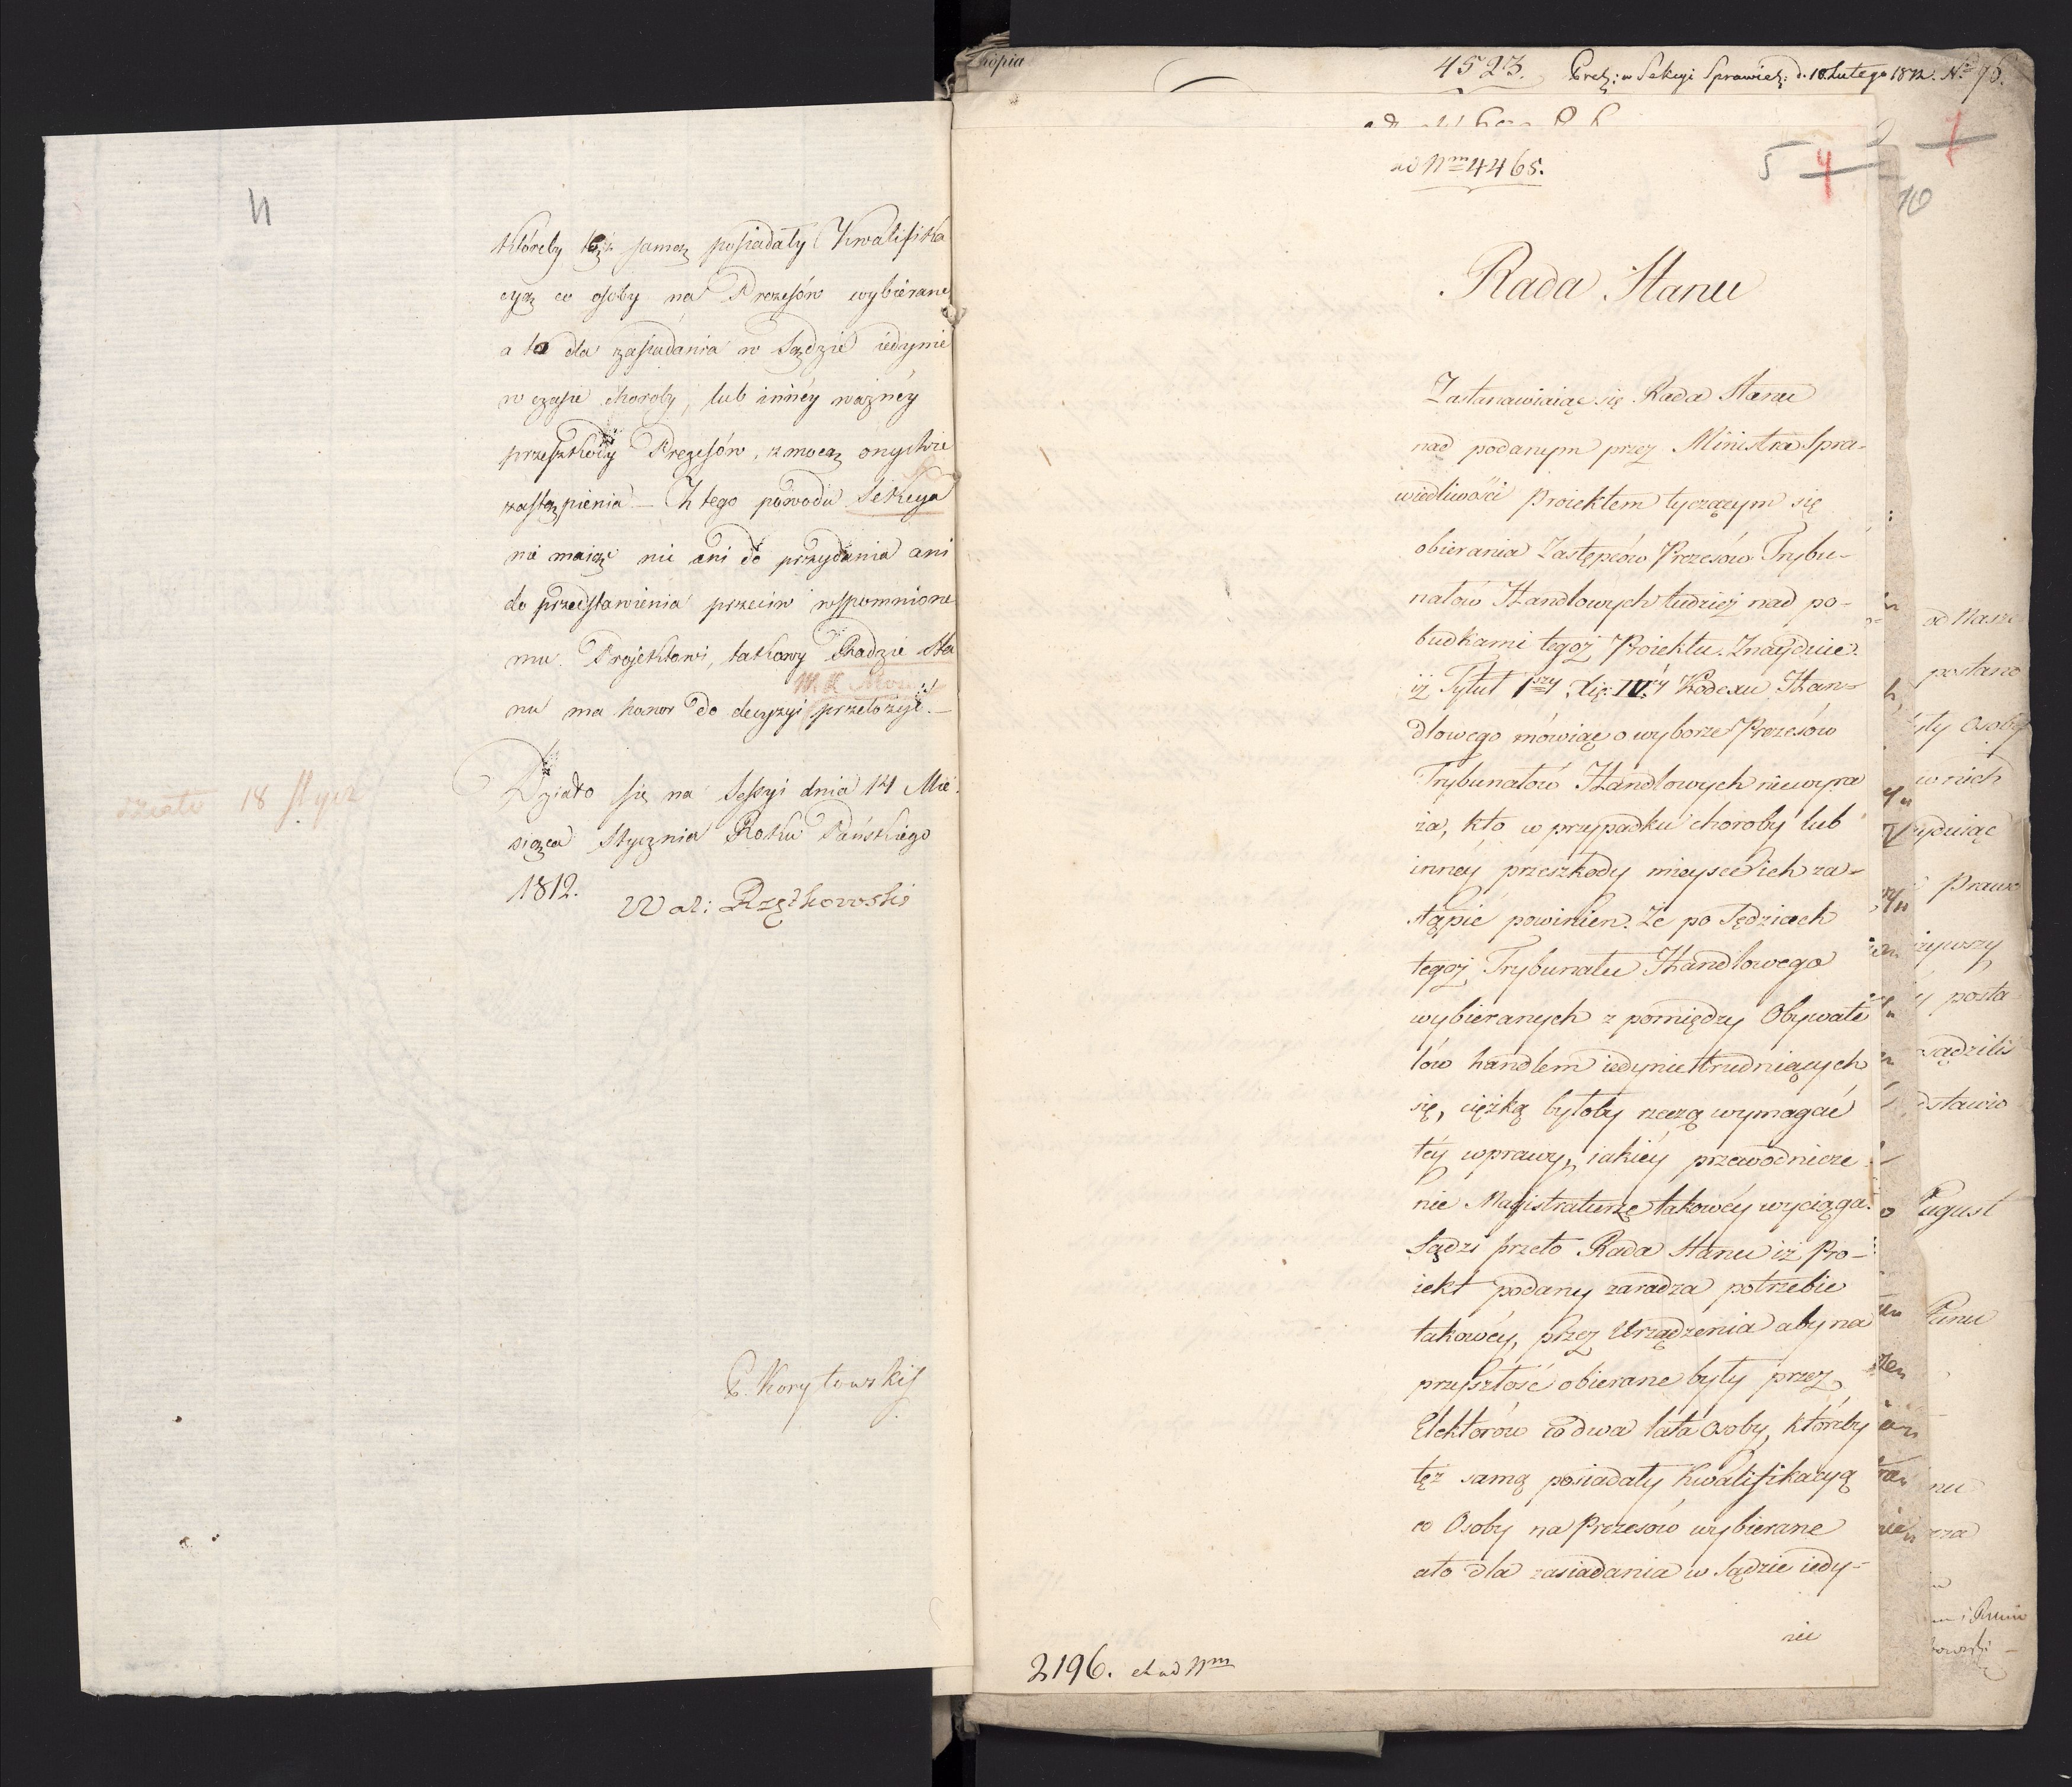 4
któreby też samą posiadały Kwalifika
cyą co osoby na Prezesów wybierane
a to dla zasiadania w Sądzie iedynie
w czasie choroby, lub innéy ważnéy
przeszkody Prezesów, z mocą onychże
zastąpienia – Z tego powodu Sekcya
nie maiąc nic ani do przydania ani
do przedstawienia przeciw wspomnione
mu Projektowi, takowy Radzie Sta
nu ma honor do decyzyi przełożyć. –
Działo się na Sessyi dnia 14 Mie
siąca Stycznia Roku Pańskiego
1812. Wal: Rzętkowski
działo 18 stycz
P. Korytowski
Kopia
4523. Prez: w Sekcyi Sprawied: d. 10 Lutego 1812. Nro 96.
ad Num 4465.
5 4
1
10
Rada Stanu
Zastanawiaiąc się Rada Stanu
nad podanym przez Ministra Spra-
wiedliwości Proiektem tyczącym się
obierania Zastępców Prezesów Trybu-
nałów Handlowych tudzież nad po-
budkami tegoż Proiektu. Znayduie.
iż Tytuł 1szy Xię: IVéy Kodexu Han-
dlowego mówiąc o wyborze Prezesów
Trybunałów Handlowych niewyra
ża, kto w przypadku choroby lub
innéy przeszkody mieysce ich za-
stąpić powinien. Że po Sędziach
tegoż Trybunału Handlowego
wybieranych z pomiędzy Obywate
lów handlem iedynie trudniących
się, ciężką byłoby rzeczą wymagać
téy wprawy, iakiéy przewodnicze
nie Magistraturze takowéy wyciąga.
Sądzi przeto Rada Stanu iż Pro-
iekt podany zaradza potrzebie
takowéy, przez Urządzenia aby na
przyszłość obierane były przez
Elektorów co dwa lata Osoby, któreby
też samą posiadały Kwalifikacyą
co Osoby na Prezesów wybierane
a to dla zasiadania w Sądzie iedy-
nie
2196. et ad Num
od Nasze
postano
były Osoby
w nich
Prawo
posta
sądzili
dstawio
August
Panu